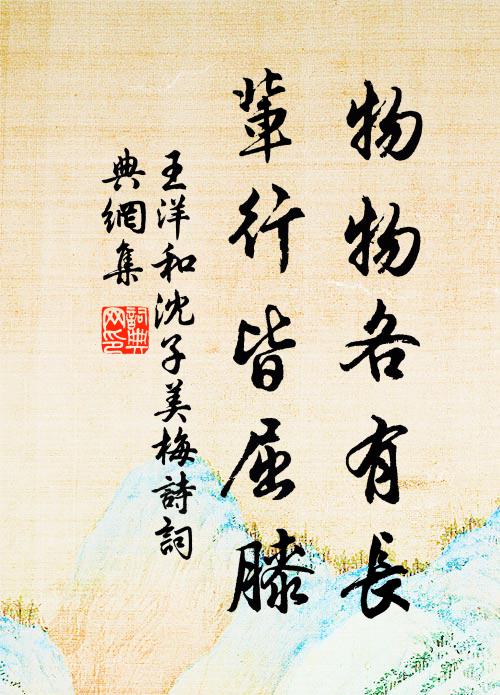 物物各有長
輩行皆屈膝
王洋和沈子美梅詩詞
典網集
詞典
网印